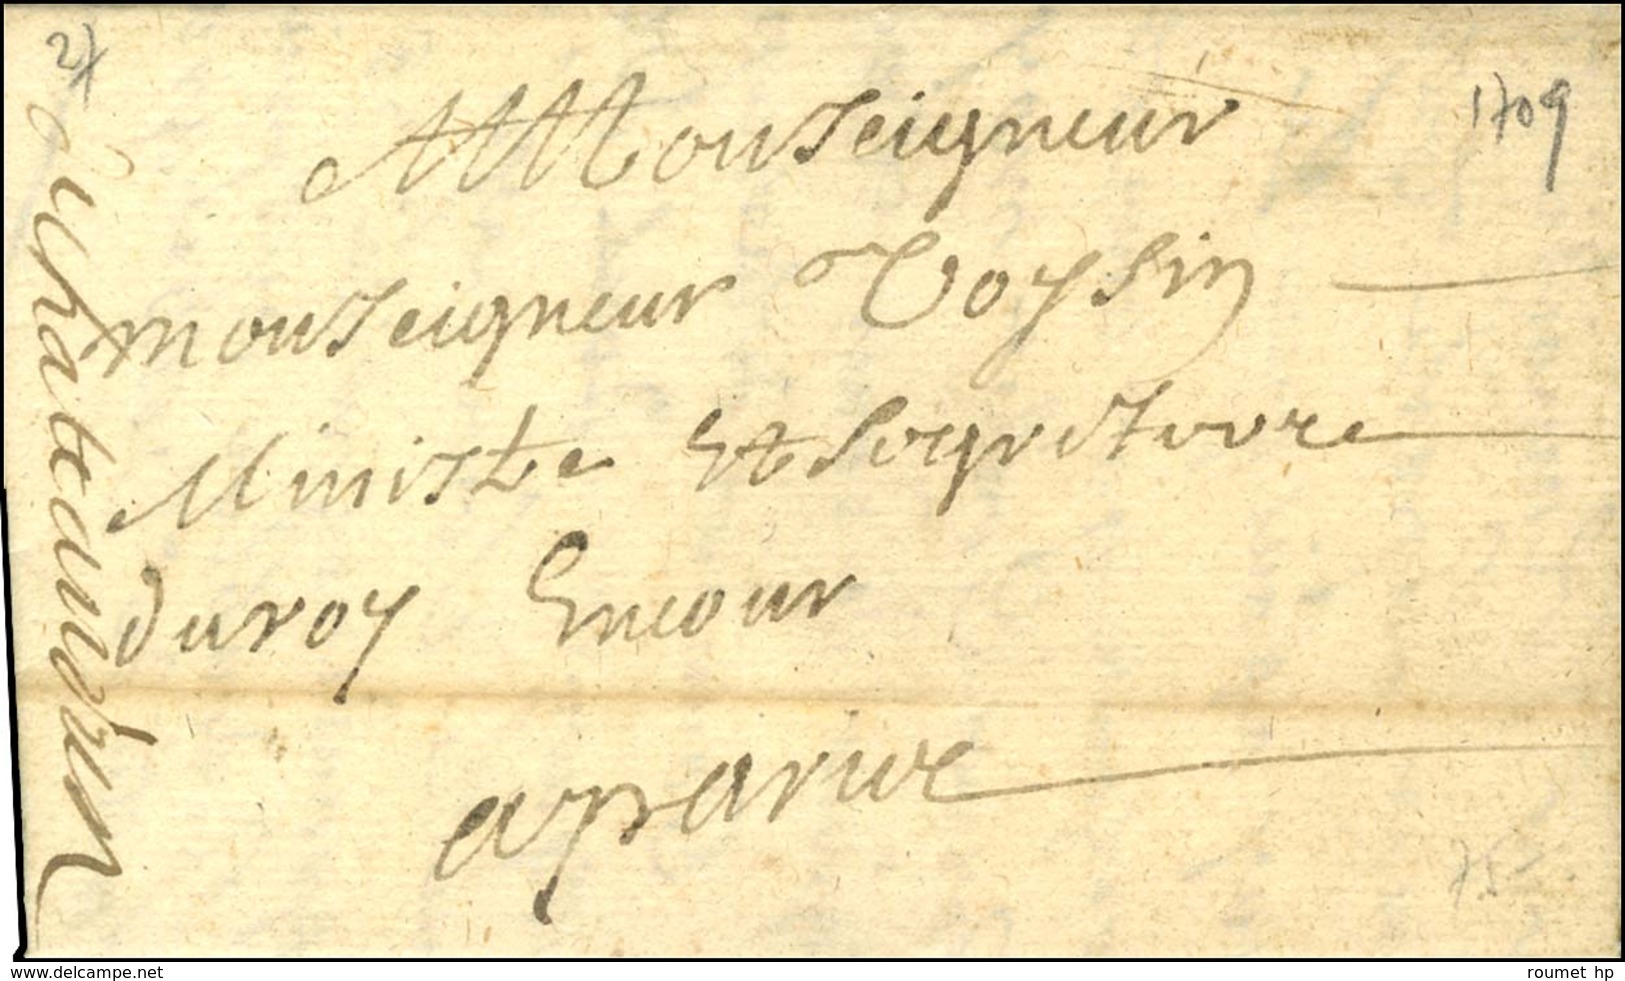 27
1709
AMonseigneur
monseigneur Voysin
Ministe Et Segretaire
du roy Encour
a parice
de chateaudun
75
www.delcampe.net
roumet hp